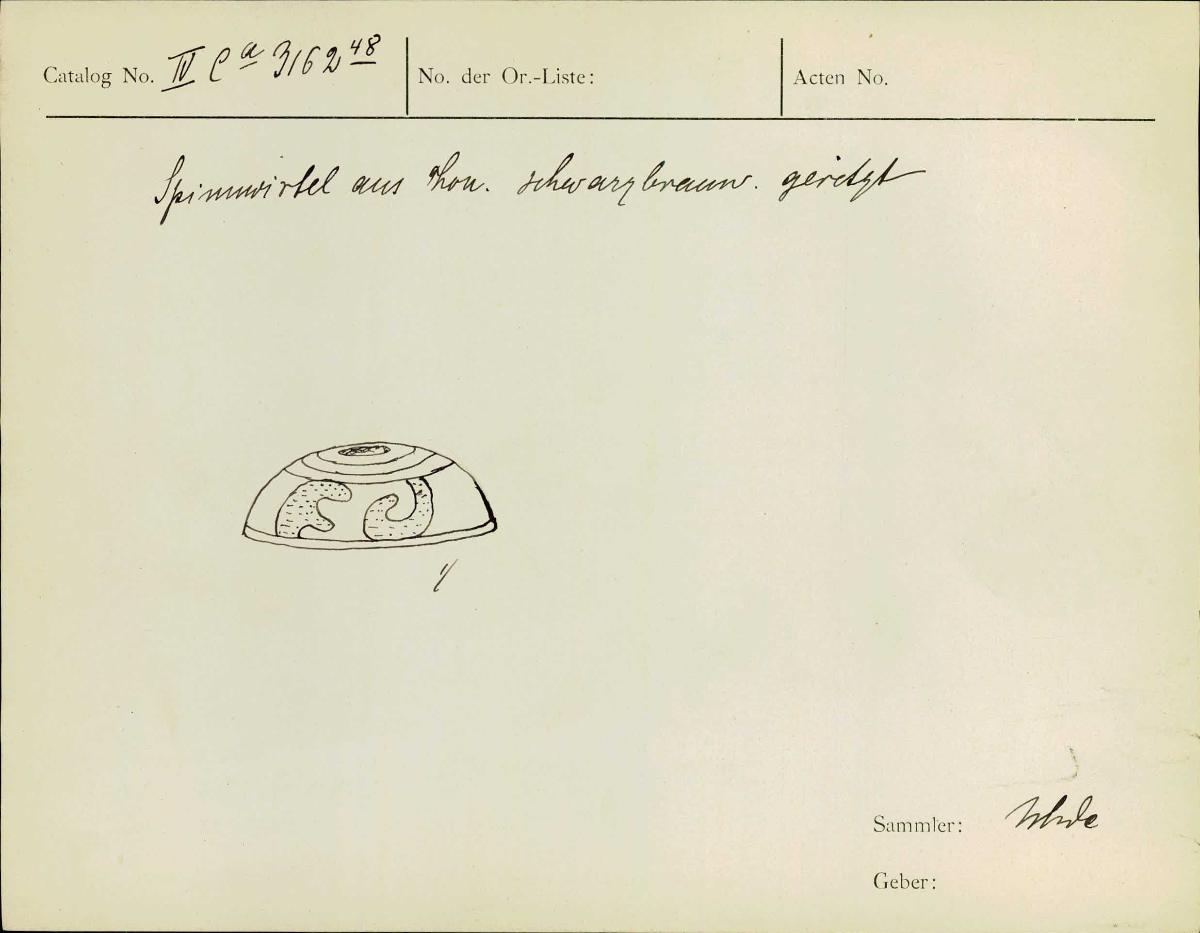 Catalog No. IV C a 3162 48
No. der Or.-Liste:
Acten No.
Spinnwirtel aus Thon. schwarzbraun. geritzt
1/
Sammler: Uhde
Geber: